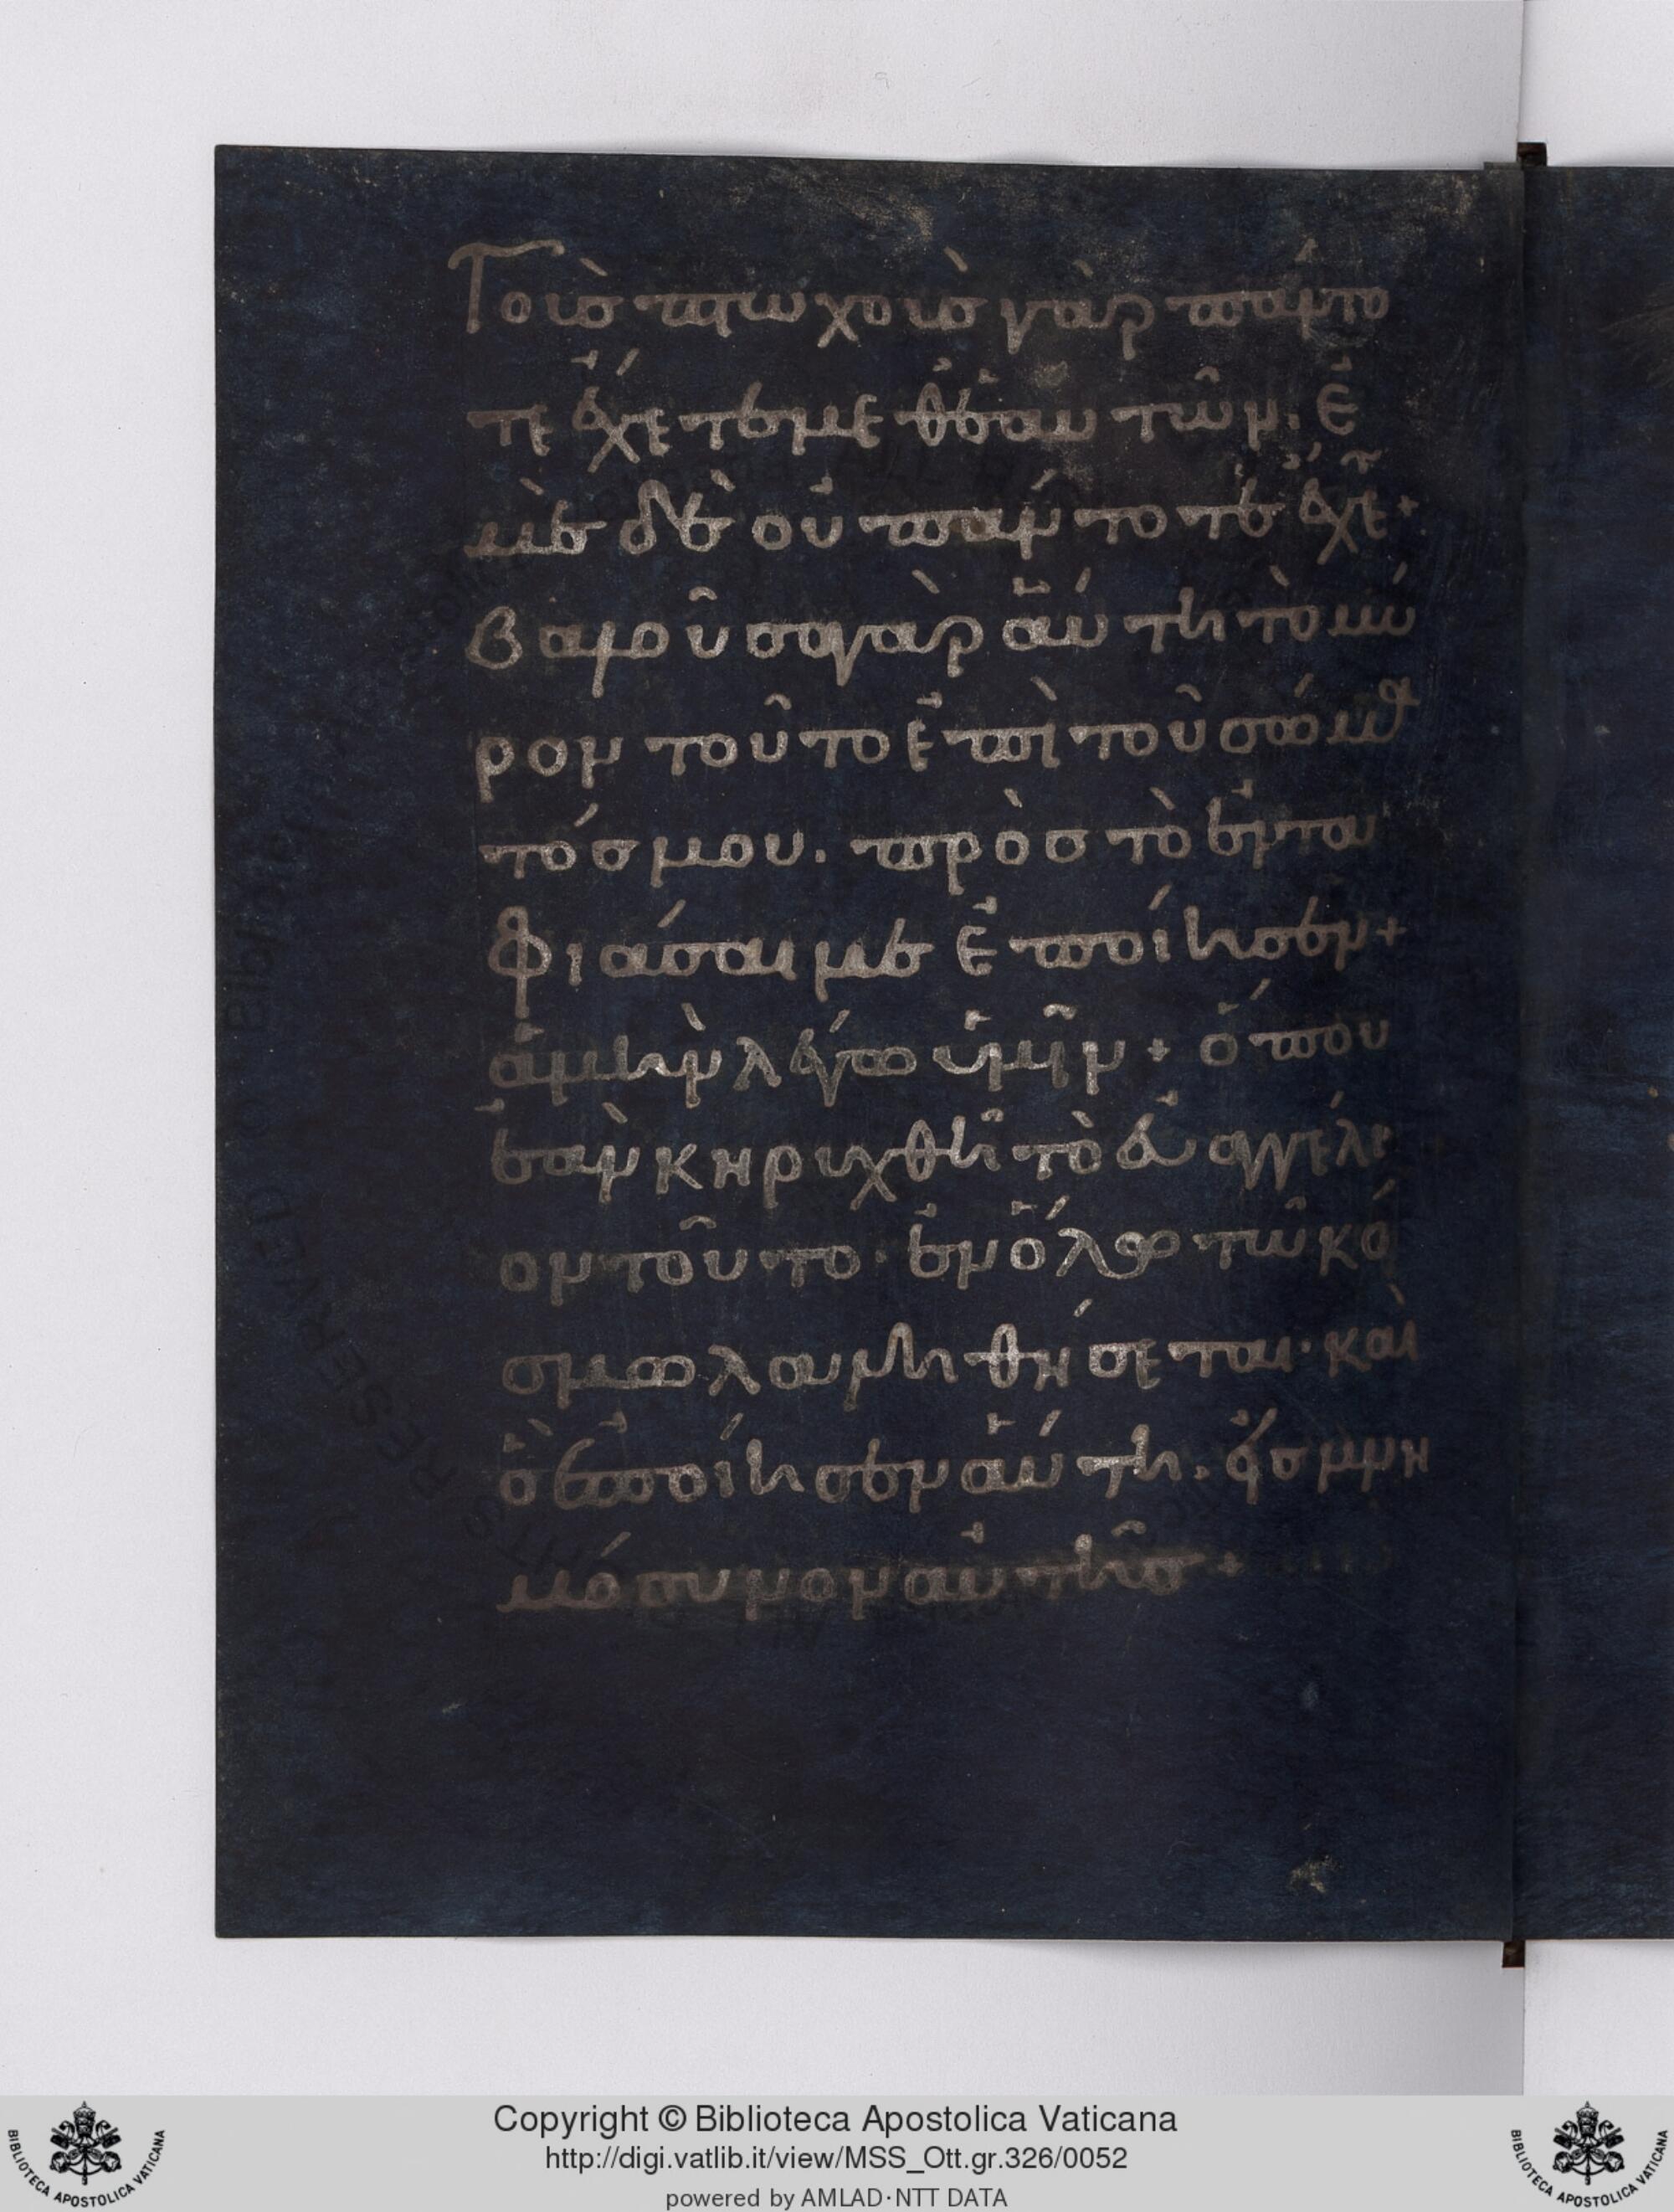 Τοῖσ πτωχοῖσ γὰρ πάντο
τε ἔχετε μεθεαυτῶν. ἐ
μὲ δὲ οὐ πάντοτε ἔχε+
Βαλοῦσα γὰρ αὕτη τὸ μύ
ρον τοῦτο ἐπὶ τοῦ σώμα
τόσ μου. πρὸσ τὸ ἐντα
φιάσαι με ἐποίησεν+
ἀμὴν λέγω ὑμῖν+ ὅπου
ἐὰν κηρυχθῆ τὸ εὐαγγέλι
ον τοῦτο· ἐν ὅλω τῶ κό
σμω λαληθήσεται· καὶ
ὃ ἐποίησεν αὕτη. εἰσ μνη
μόσυνον αὐτῆσ+
Copyright © Biblioteca Apostolica Vaticana
http://digi.vatlib.it/view/MSS_Ott.gr.326/0052
powered by AMLAD·NTT DATA
BIBLIOTECA APOSTOLICA VATICANA
BIBLIOTECA APOSTOLICA VATICANA